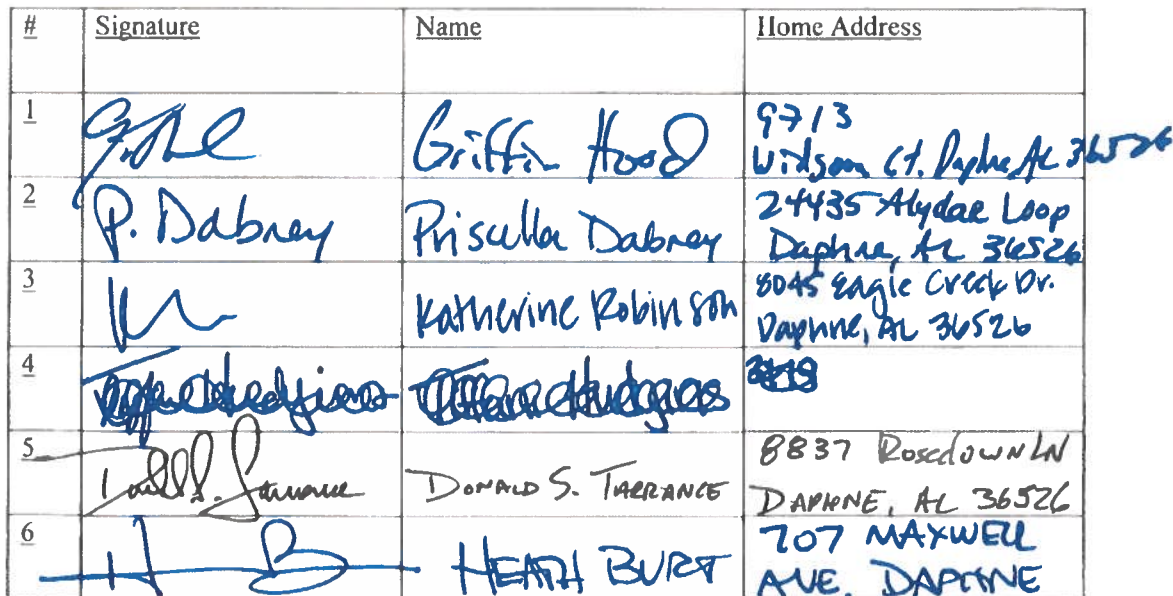 # Signature Name Home Address
1 Griffin Hood 9713
Ct. Daphne, AL 36526
2 P. Dabney Priscilla Dabney 24435 Alydar Loop
Daphne, AL 36526
3 Katherine Robinson 8045 Eagle Creek Dr.
Daphne, AL 36526
4
5 DONALD S. TARRANCE 8837 Rosedown LN
DAPHNE, AL 36526
6 HEATH BURT 707 MAXWELL
AVE, DAPHNE